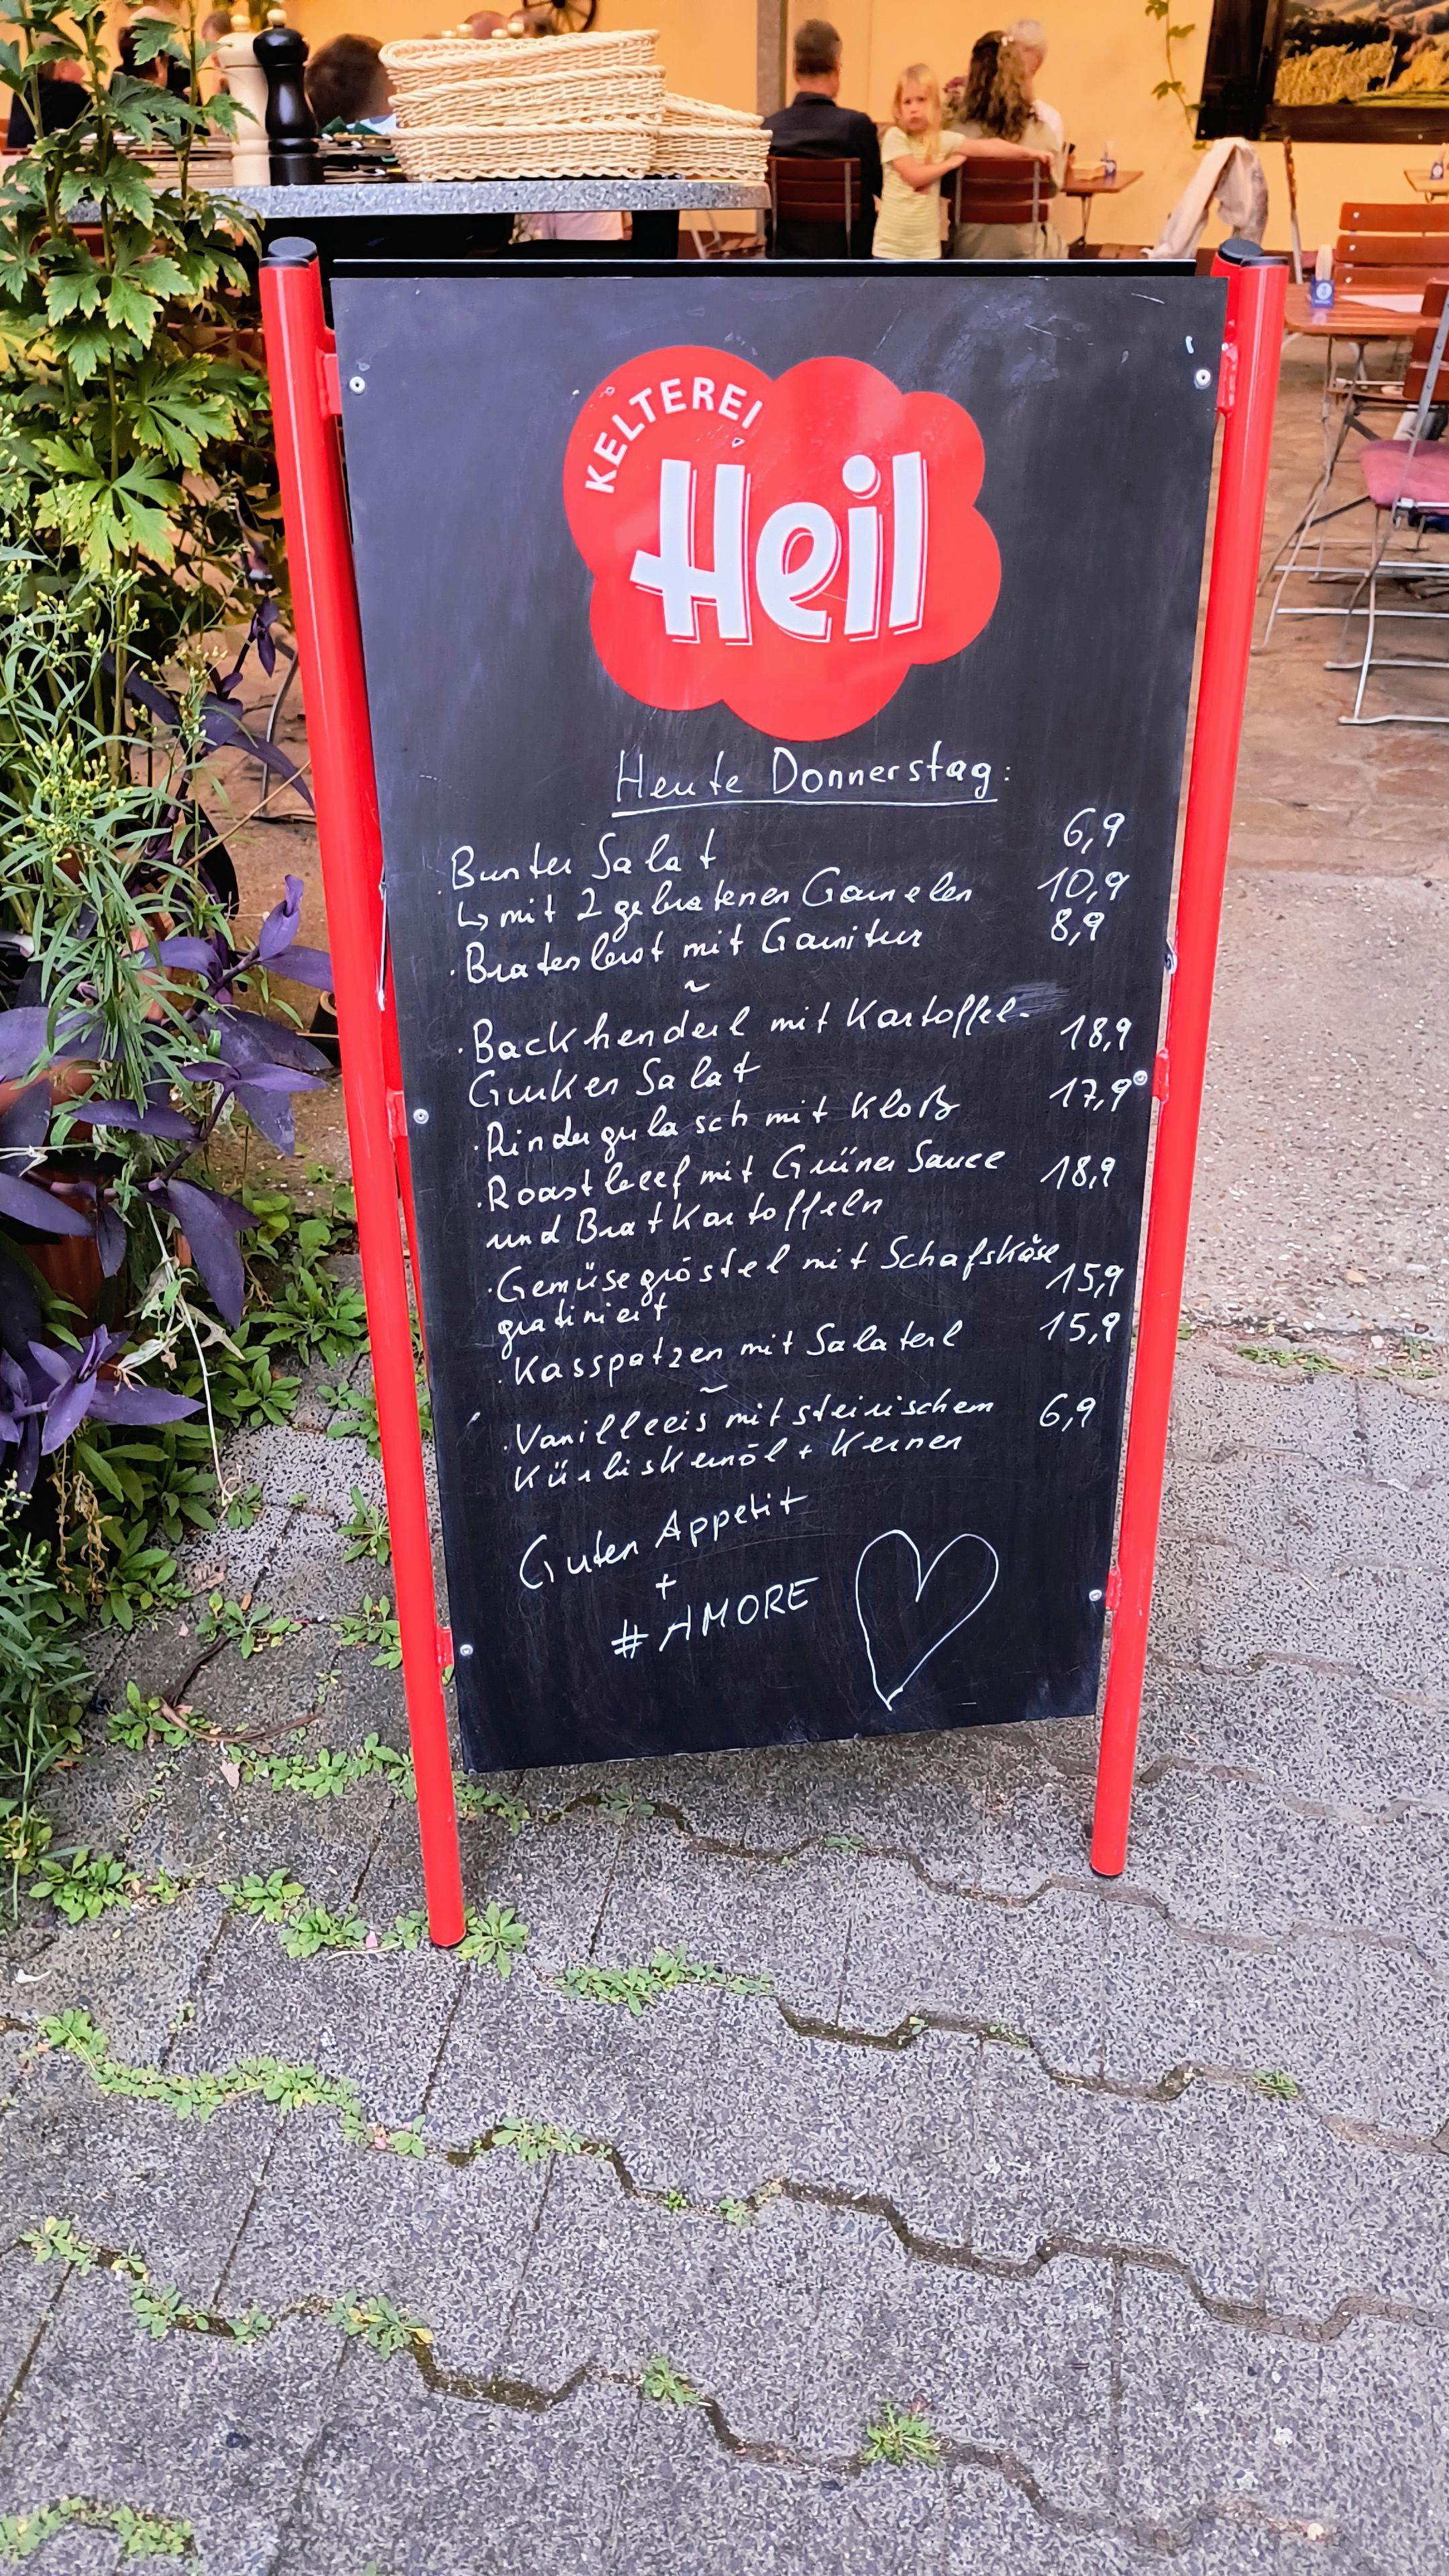 KELTEREI
Heil
Heute Donnerstag:
Bunter Salat 6,9
↳ mit 2 gebratenen Garnelen 10,9
· Bratenbrot mit Garnitur 8,9
~
· Backhenderl mit Kartoffel- 18,9
Gurken Salat
· Rindergulasch mit Kloß 17,9
· Roastbeef mit Grüner Sauce 18,9
und Bratkartoffeln
· Gemüsegröstel mit Schafskäse
gratiniert 15,9
· Kasspatzen mit Salaterl 15,9
~
· Vanilleeis mit steirischem 6,9
Kürbiskernöl + Kernen
Guten Appetit
+
#AMORE